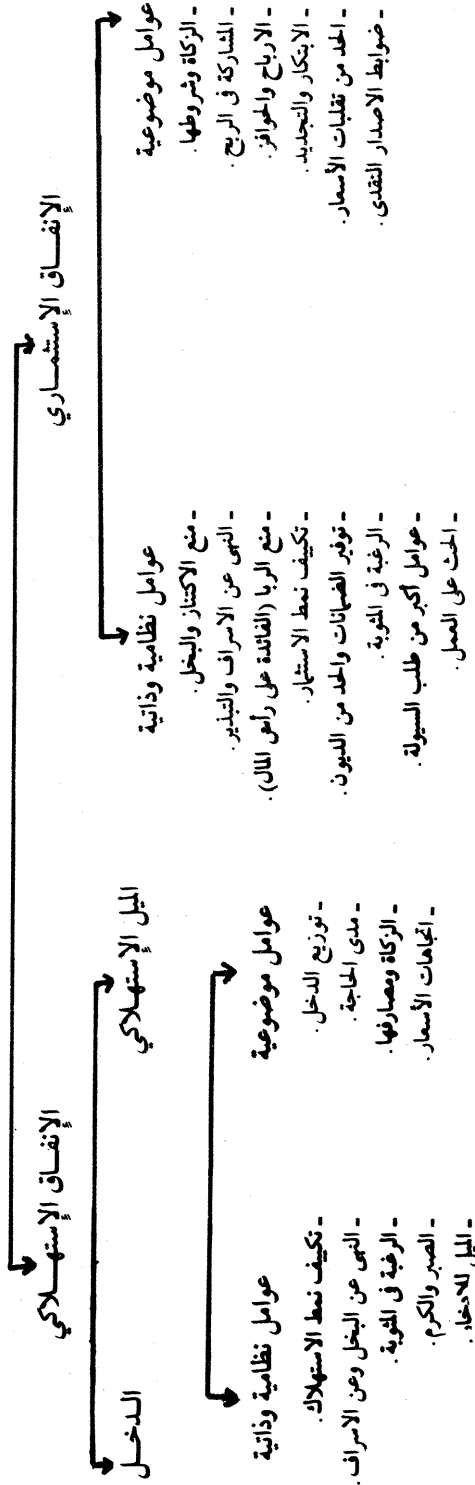 الإنفـاق الإستثمـاري
عوامل موضوعية
- الزكاة وشروطها.
- المشاركة فى الربح.
- الارباح والحوافز.
- الابتكار والتجديد.
- الحد من تقلبات الأسعار.
- ضوابط الاصدار النقدى.
عوامل نظامية وذاتية
- منع الاكتناز والبخل.
- النهى عن الاسراف والتبذير.
- منع الربا (الفائدة على رأس المال).
- تكييف نمط الاستثمار.
- توفير الضمانات والحد من الديون.
- الرغبة فى المثوبة.
- عوامل أكبر من طلب السيولة.
- الحث على العمل.
الإنفـاق الإستهـلاكي
الميل الإستهـلاكي
الـدخـــل
عوامل موضوعية
- توزيع الدخل.
- مدى الحاجة.
- الزكاة ومصارفها.
- اتجاهات الأسعار.
عوامل نظامية وذاتية
- تكييف نمط الاستهلاك.
- النهى عن البخل وعن الاسراف.
- الرغبة فى المثوبة.
- الصبر والكرم.
- الميل للادخار.